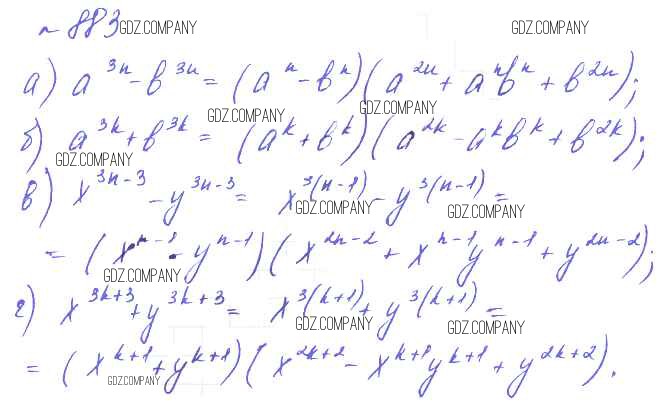 № 883 GDZ.COMPANY GDZ.COMPANY
а) a^{3n} - b^{3n} = (a^n - b^n)(a^{2n} + a^n b^n + b^{2n});
GDZ.COMPANY GDZ.COMPANY
б) a^{3k} + b^{3k} = (a^k + b^k)(a^{2k} - a^k b^k + b^{2k});
GDZ.COMPANY
в) x^{3n-3} - y^{3n-3} = x^{3(n-1)} - y^{3(n-1)} =
GDZ.COMPANY GDZ.COMPANY
= (x^{n-1} - y^{n-1})(x^{2n-2} + x^{n-1} y^{n-1} + y^{2n-2});
GDZ.COMPANY
г) x^{3k+3} + y^{3k+3} = x^{3(k+1)} + y^{3(k+1)} =
GDZ.COMPANY GDZ.COMPANY
= (x^{k+1} + y^{k+1})(x^{2k+2} - x^{k+1} y^{k+1} + y^{2k+2}).
GDZ.COMPANY